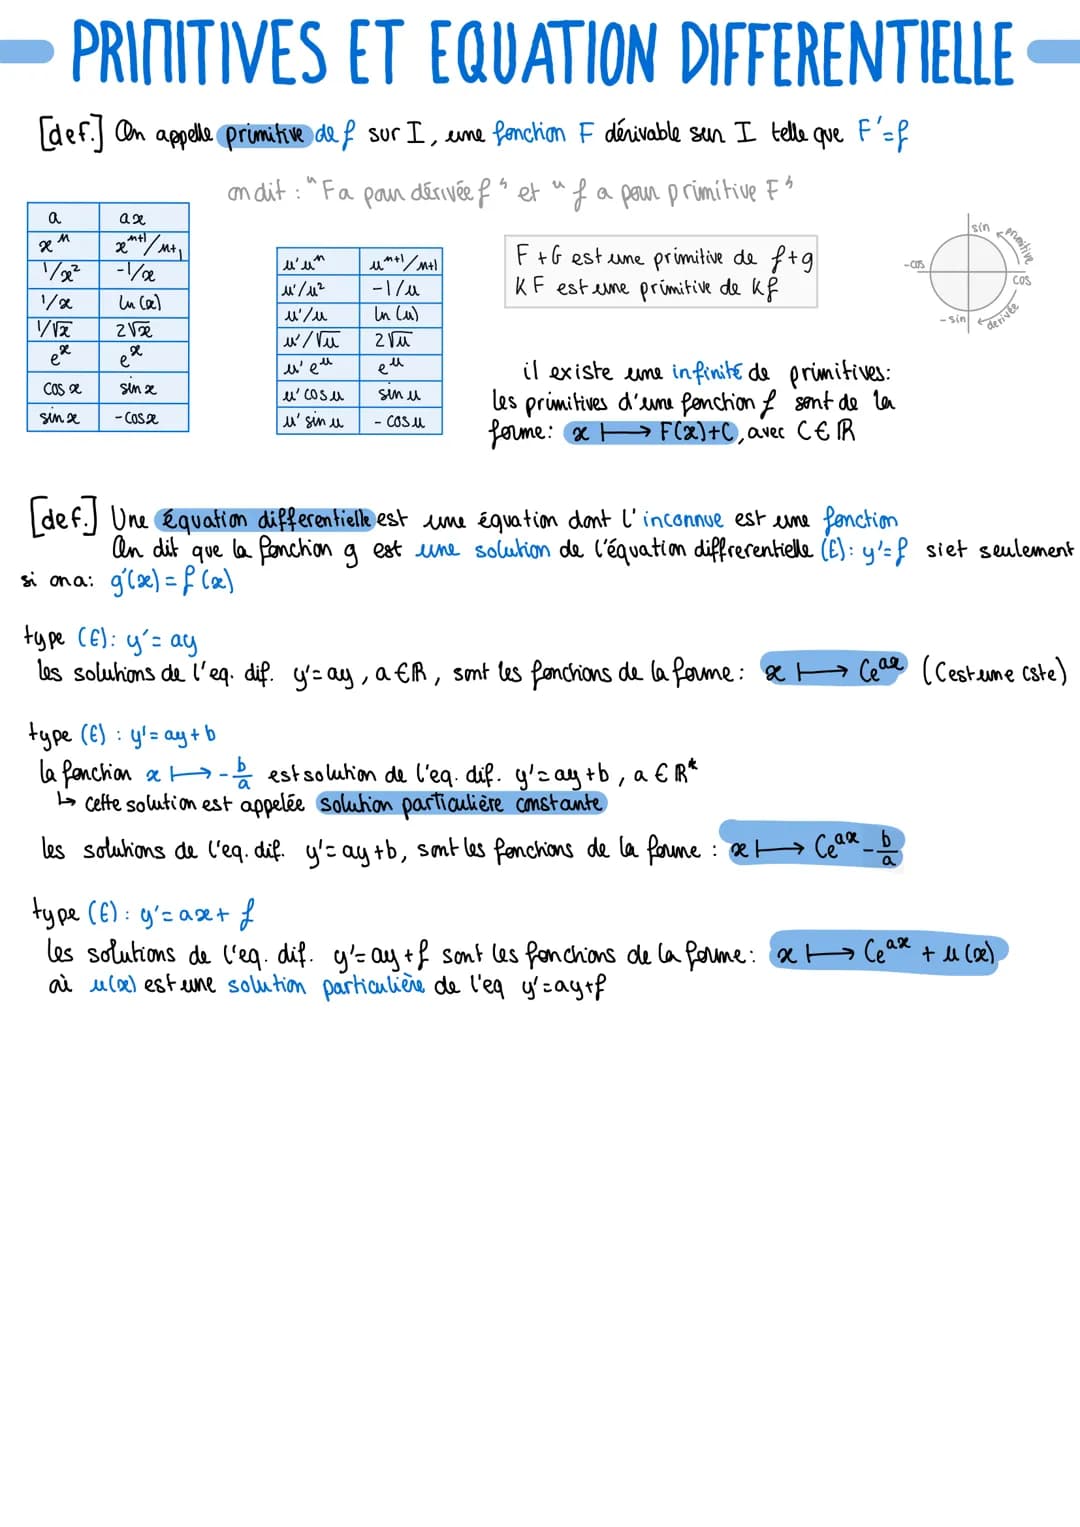 PRIMITIVES ET EQUATION DIFFERENTIELLE
[def.] On appelle primitive de f sur I, une fonction F dérivable sur I telle que F'=f
on dit : "F a pour dérivée f" et "f a pour primitive F"
a | ax
xⁿ | xⁿ⁺¹/n+1
1/x² | -1/x
1/x | ln(x)
1/√x | 2√x
eˣ | eˣ
cos x | sin x
sin x | -cos x
u'uⁿ | uⁿ⁺¹/n+1
u'/u² | -1/u
u'/u | ln(u)
u'/√u | 2√u
u'eᵘ | eᵘ
u'cos u | sin u
u' sin u | - cos u
F+G est une primitive de f+g
KF est une primitive de kf
sin
primitive
-cos
cos
-sin
derivée
il existe une infinité de primitives:
les primitives d'une fonction f sont de la
forme: x ⟼ F(x)+C, avec C∈ℝ
[def.] Une équation differentielle est une équation dont l'inconnue est une fonction
On dit que la fonction g est une solution de l'équation diffrerentielle (E): y'=f si et seulement
si on a: g'(x) = f(x)
type (E): y'= ay
les solutions de l'eq. dif. y'=ay, a∈ℝ, sont les fonctions de la forme: x ⟼ Ceᵃˣ (C est une cste)
type (E) : y'= ay+b
la fonction x ⟼ -b/a est solution de l'eq. dif. y'=ay+b, a∈ℝ*
↳ cette solution est appelée solution particulière constante
les solutions de l'eq. dif. y'=ay+b, sont les fonctions de la forme : x ⟼ Ceᵃˣ - b/a
type (E): y'= ax+ f
les solutions de l'eq. dif. y'= ay+f sont les fonctions de la forme: x ⟼ Ceᵃˣ + u(x)
où u(x) est une solution particulière de l'eq y'=ay+f